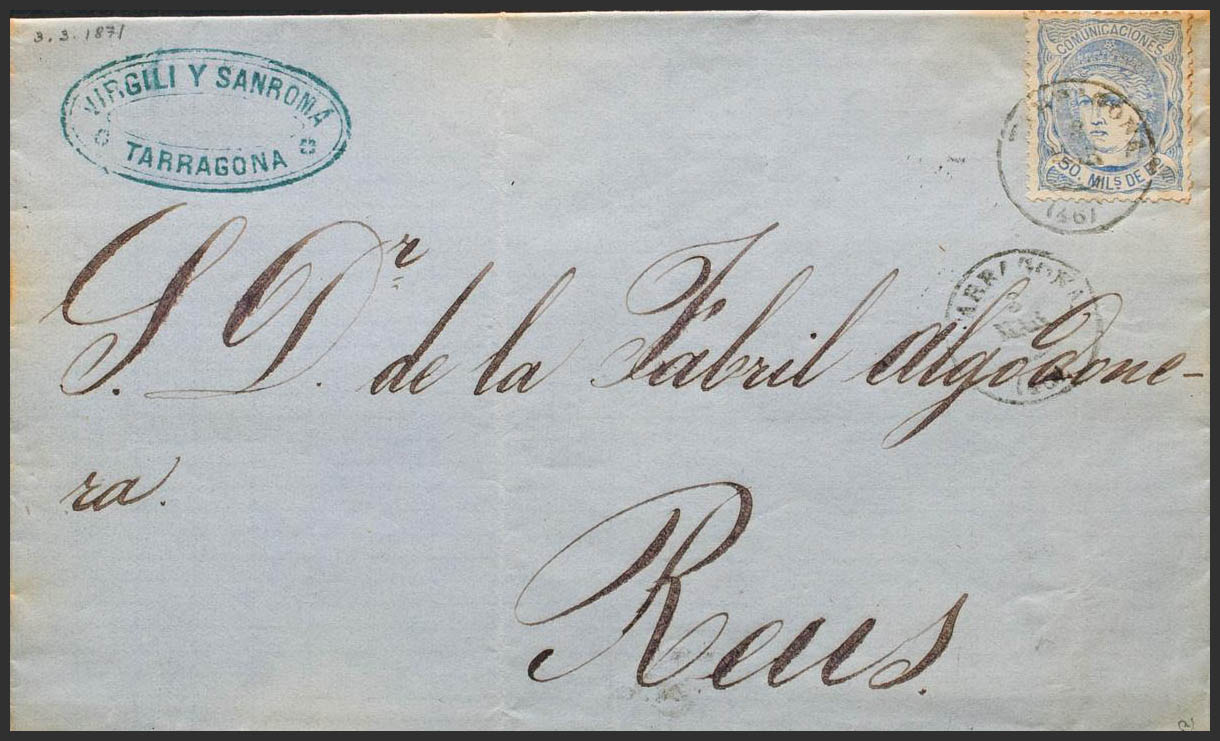 3.3.1871
VIRGILI Y SANROMÁ
TARRAGONA
COMUNICACIONES
50. MILS DE
(46)
S. Dr. de la Fabril algodone-
ra.
Reus.